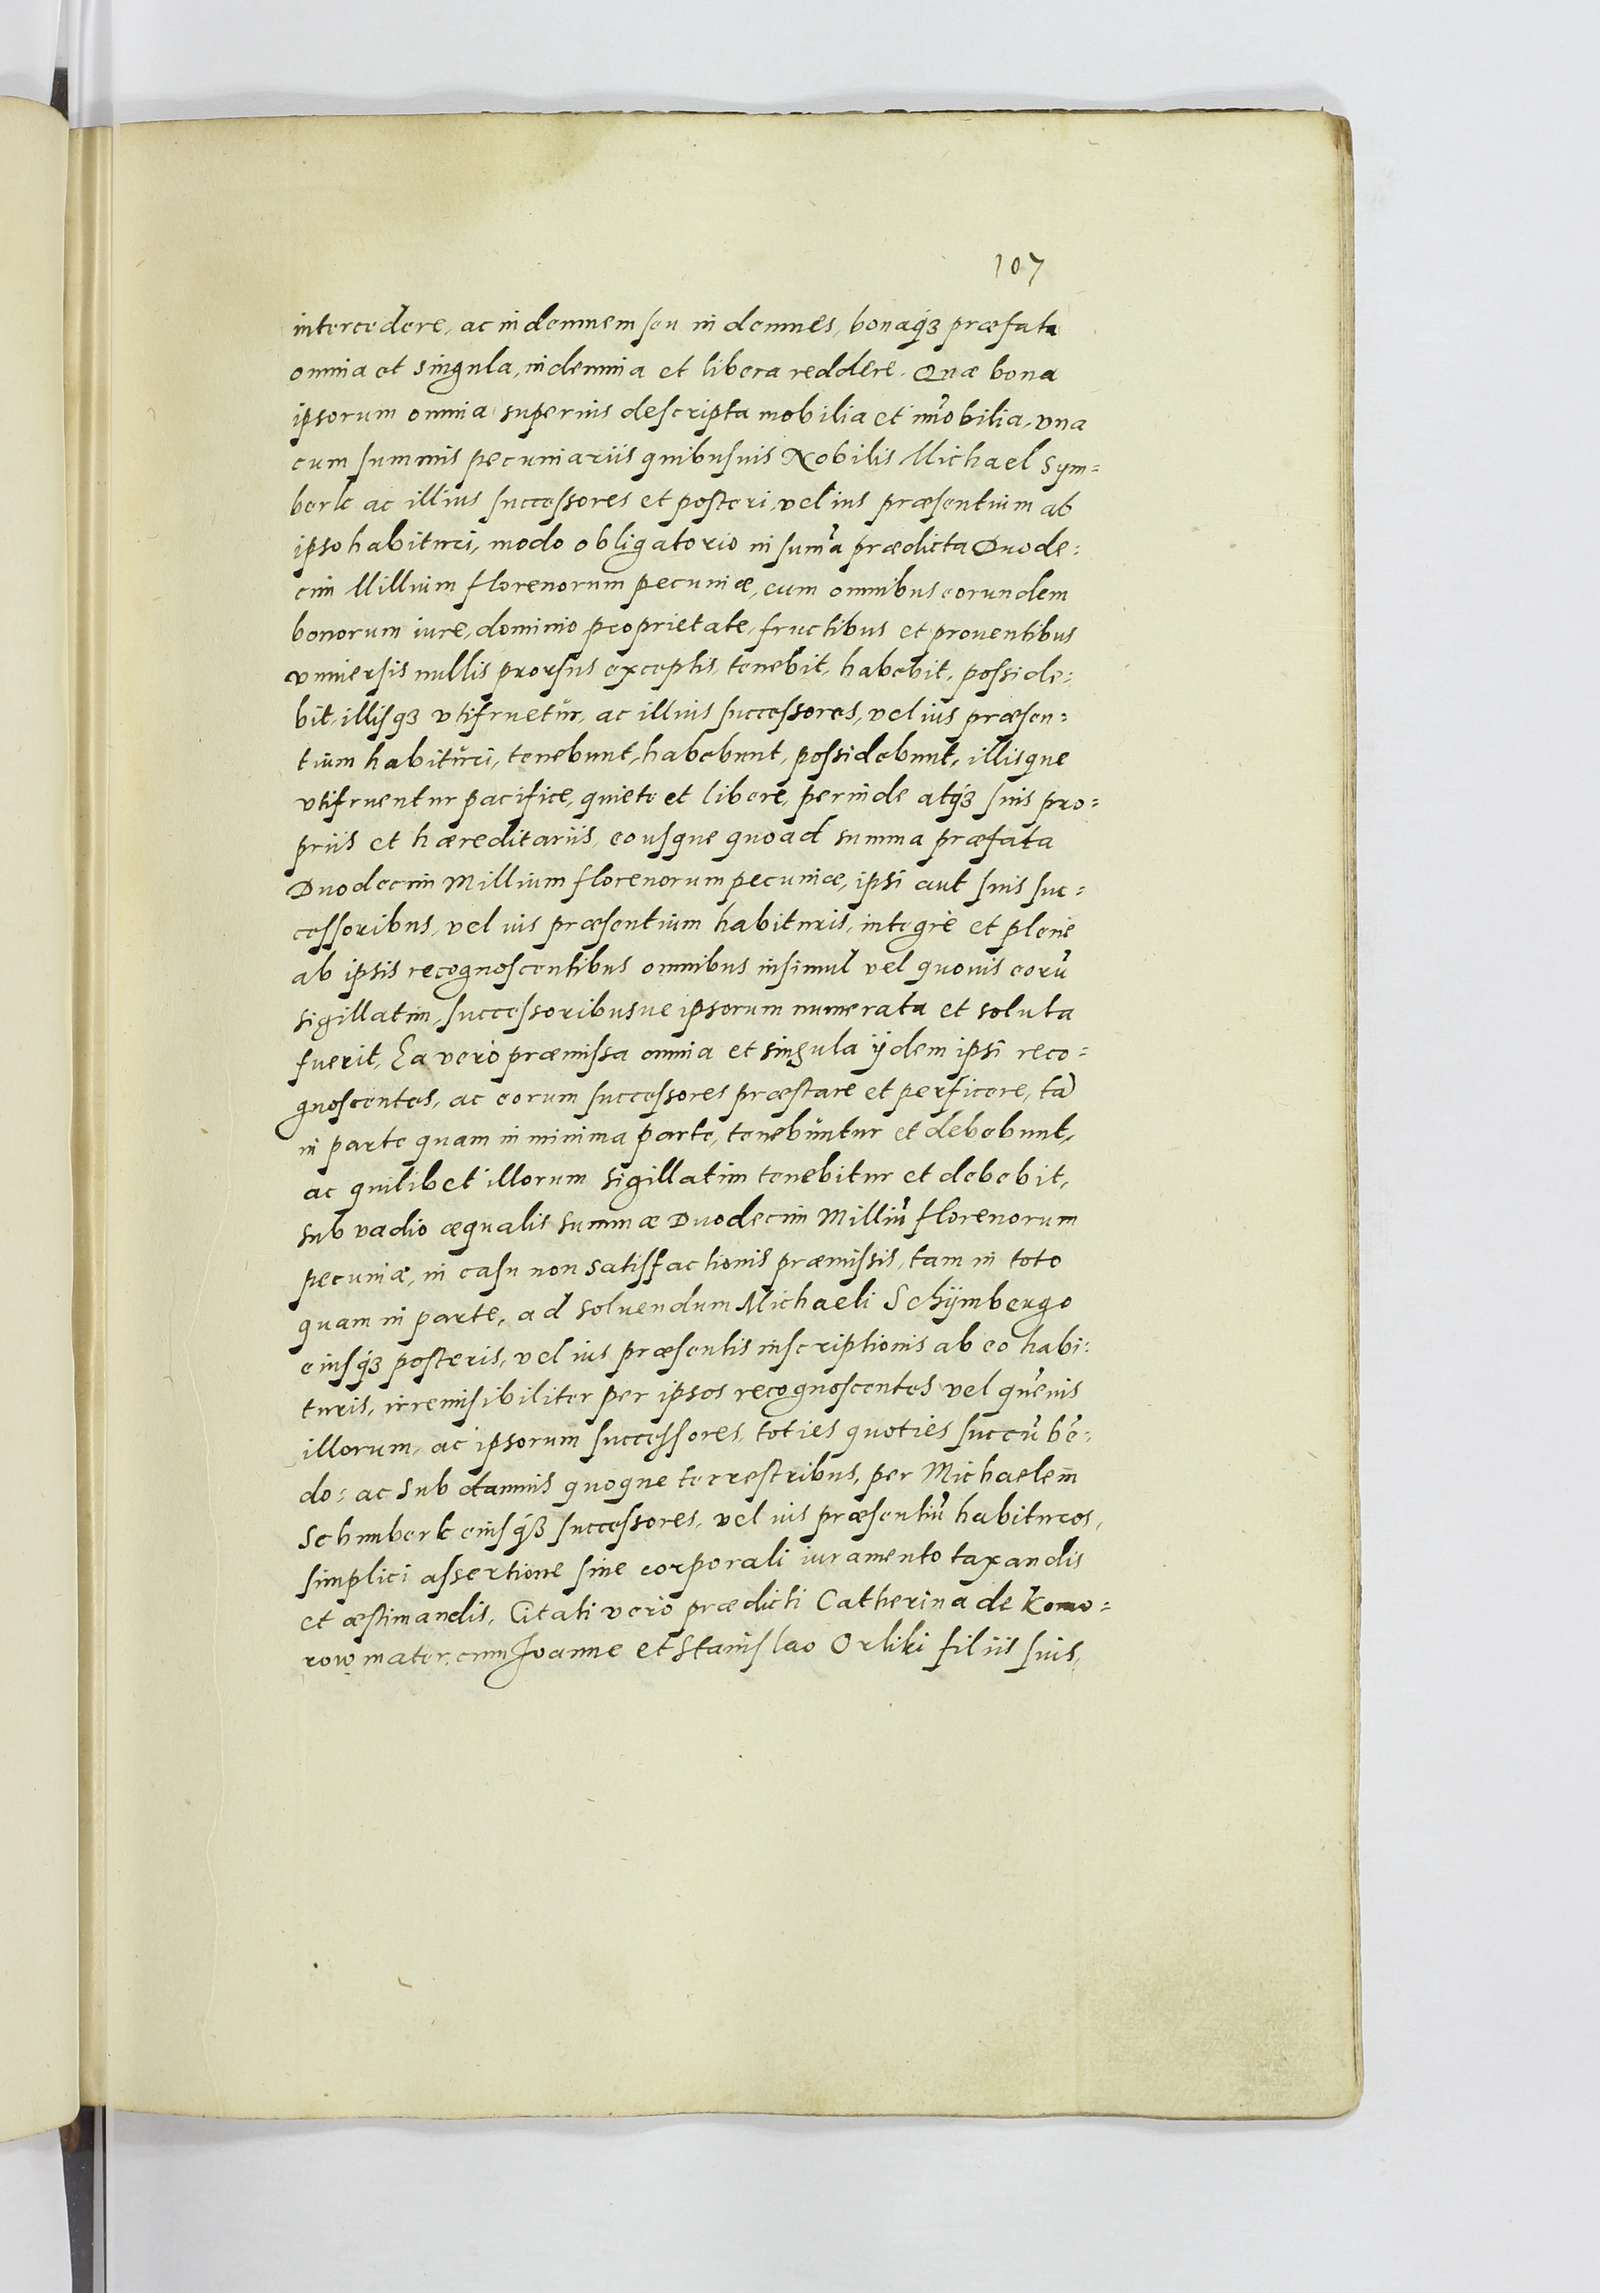 107
intercedere, ac indemnem seu indemnes, bonaq́ꝫ præfata
omnia et singula, indemnia et libera reddere. Quæ bona
ipsorum omnia superius descripta mobilia et im̃obilia, vna
cum summis pecuniariis quibusuis Nobilis Michael Sym=
berk ac illius successores et posteri, vel ius præsentium ab
ipso habituri, modo obligatorio in sum̃a prædicta Duode=
cim Millium florenorum pecuniæ, cum omnibus eorundem
bonorum iure, dominio proprietate, fructibus et prouentibus
vniuersis nullis prorsus exceptis, tenebit, habebit, posside=
bit, illisqꝫ vtifruetur, ac illius successores, vel ius præsen=
tium habituri, tenebunt, habebunt, possidebunt, illisque
vtifruentur pacifice, quiete et libere, perinde atq́ꝫ suis pro=
priis et hæreditariis, eousque quoad summa præfata
Duodecim Millium florenorum pecuniæ, ipsi aut suis suc=
cessoribus, vel ius præsentium habituris, integrè et plenè
ab ipsis recognoscentibus omnibus insimul vel quouis eorũ
sigillatim, successoribusue ipsorum numerata et soluta
fuerit. Ea verò præmissa omnia et singula ijdem ipsi reco=
gnoscentes, ac eorum successores præstare et perficere, tã
in parte quam in minima parte, tenebuntur et debebunt,
ac quilibet illorum sigillatim tenebitur et debebit,
sub vadio æqualis summæ Duodecim Milliũ florenorum
pecuniæ, in casu non satisfactionis præmissis, tam in toto
quam in parte, ad soluendum Michaeli Schÿmbergo
eiusq́ꝫ posteris, vel ius præsentis inscriptionis ab eo habi=
turis, irremisibiliter per ipsos recognoscentes vel quẽuis
illorum, ac ipsorum successores, toties quoties succũbẽ=
do: ac sub damnis quoque terrestribus, per Michaelem̃
Schimberk eiusq́ꝫ successores, vel ius præsentiũ habituros,
simplici assertione sine corporali iuramento taxandis
et æstimandis. Citati verò prædicti Catherina de Komo=
row mater, cum Joanne et Stanislao Orliki filiis suis,